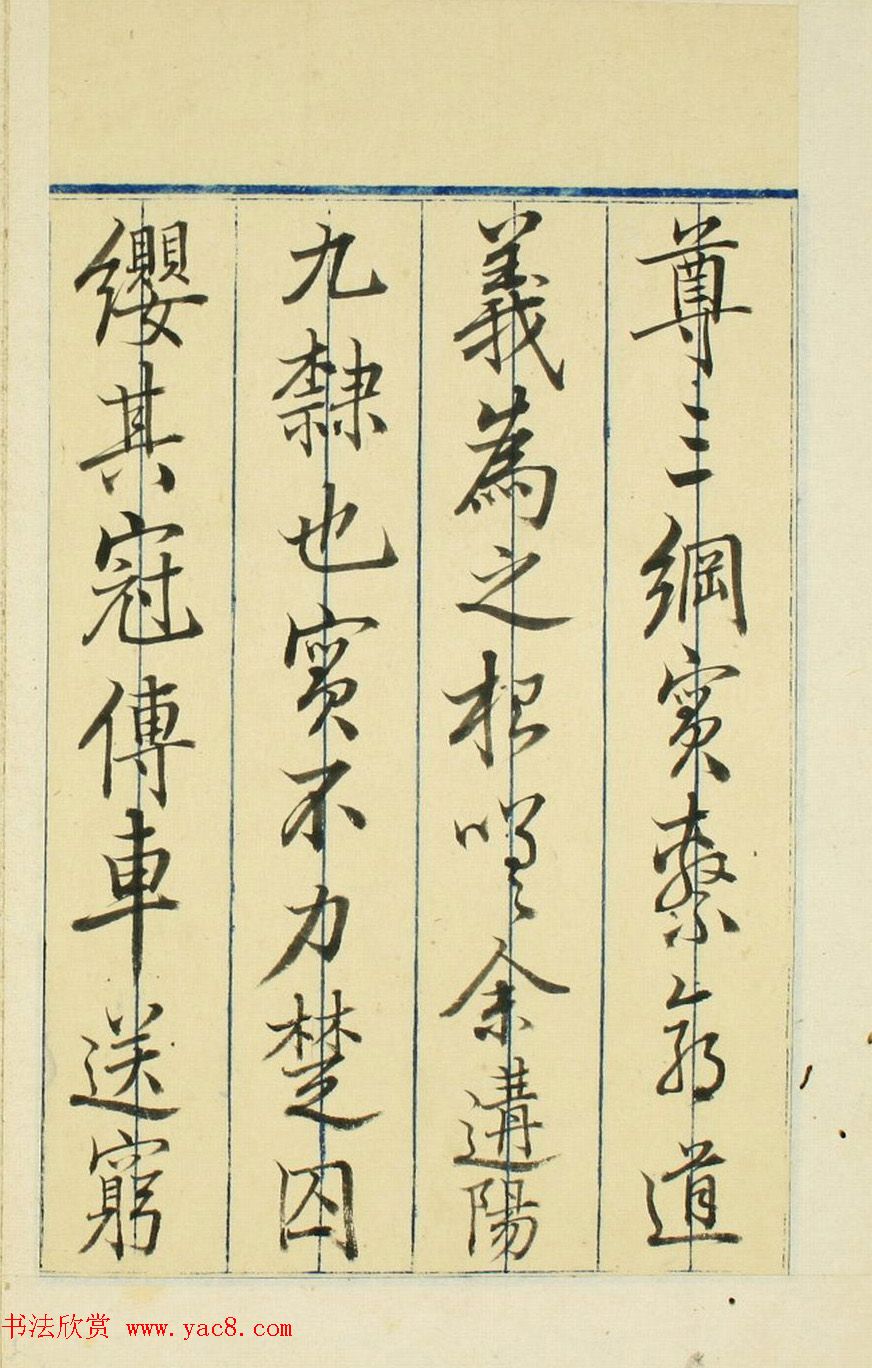 尊三綱實繫命道
義為之根嗟余遘陽
九隸也實不力楚囚
纓其冠傳車送窮
书法欣赏 www.yac8.com